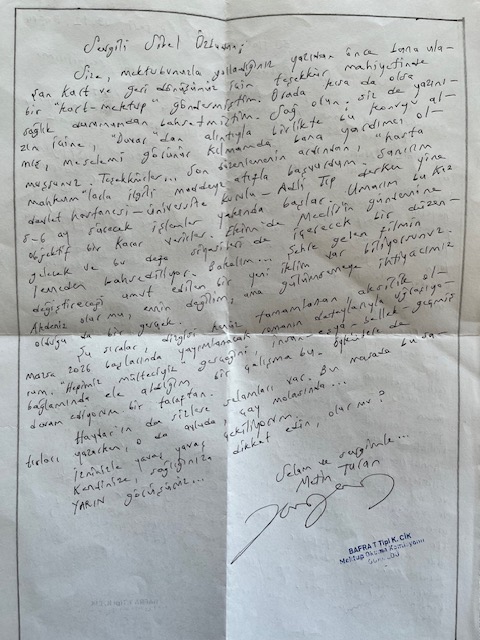 Sevgili Sibel Özbudun;
Size, mektubunuzla yolladığınız yazıdan önce bana ula-
şan kart ve geri dönüşünüz için teşekkür mahiyetinde
bir "kart-mektup" göndermiştim. Orada kısa da olsa
sağlık durumumdan bahsetmiştim. Sağ olun, siz de yazını-
zın içine, "Duvar"dan alıntıyla birlikte bu konuyu al-
mış, meselemi görünür kılmamda bana yardımcı ol-
muşsunuz. Teşekkürler... Son düzenlemenin ardından, "hasta
mahkum"larla ilgili maddeye atıfla başvurdum. Sanırım
devlet hastanesi - üniversite kurulu - Adli Tıp derken yine
5-6 ay sürecek işlemler yakında başlar. Umarım bu kez
objektif bir karar verirler. Ekim'de Meclis'in gündemine
gelecek ve bu defa siyasileri de içerecek bir düzen-
lemeden bahsediliyor. Bakalım... Şehre gelen filmin
değiştireceği umut edilen bir yeni iklim var biliyorsunuz.
Akdeniz olur mu, emin değilim, ama gülümsemeye ihtiyacımız
olduğu da bir gerçek.
Şu sıralar, dizgisi henüz tamamlanan aksilik ol-
mazsa 2026 başlarında yayımlanacak romanın detaylarıyla uğraşıyo-
rum. "Hepimiz mülteciyiz" gerçeğini, insan-eşya-bellek-geçmiş
bağlamında ele aldığım bir çalışma bu. Öykülere de
devam ediyorum bir taraftan.
Haydar'ın da sizlere selamları var. Ben masada bu sa-
tırları yazarken, o da avluda, çay molasında...
İzninizle yavaş yavaş çekiliyorum.
Kendinize, sağlığınıza dikkat edin, olur mu?
YARIN görüşürüz...
Selam ve sevgimle...
Metin Turan
BAFRA T Tipi K. CİK
Mektup Okuma Komisyonu